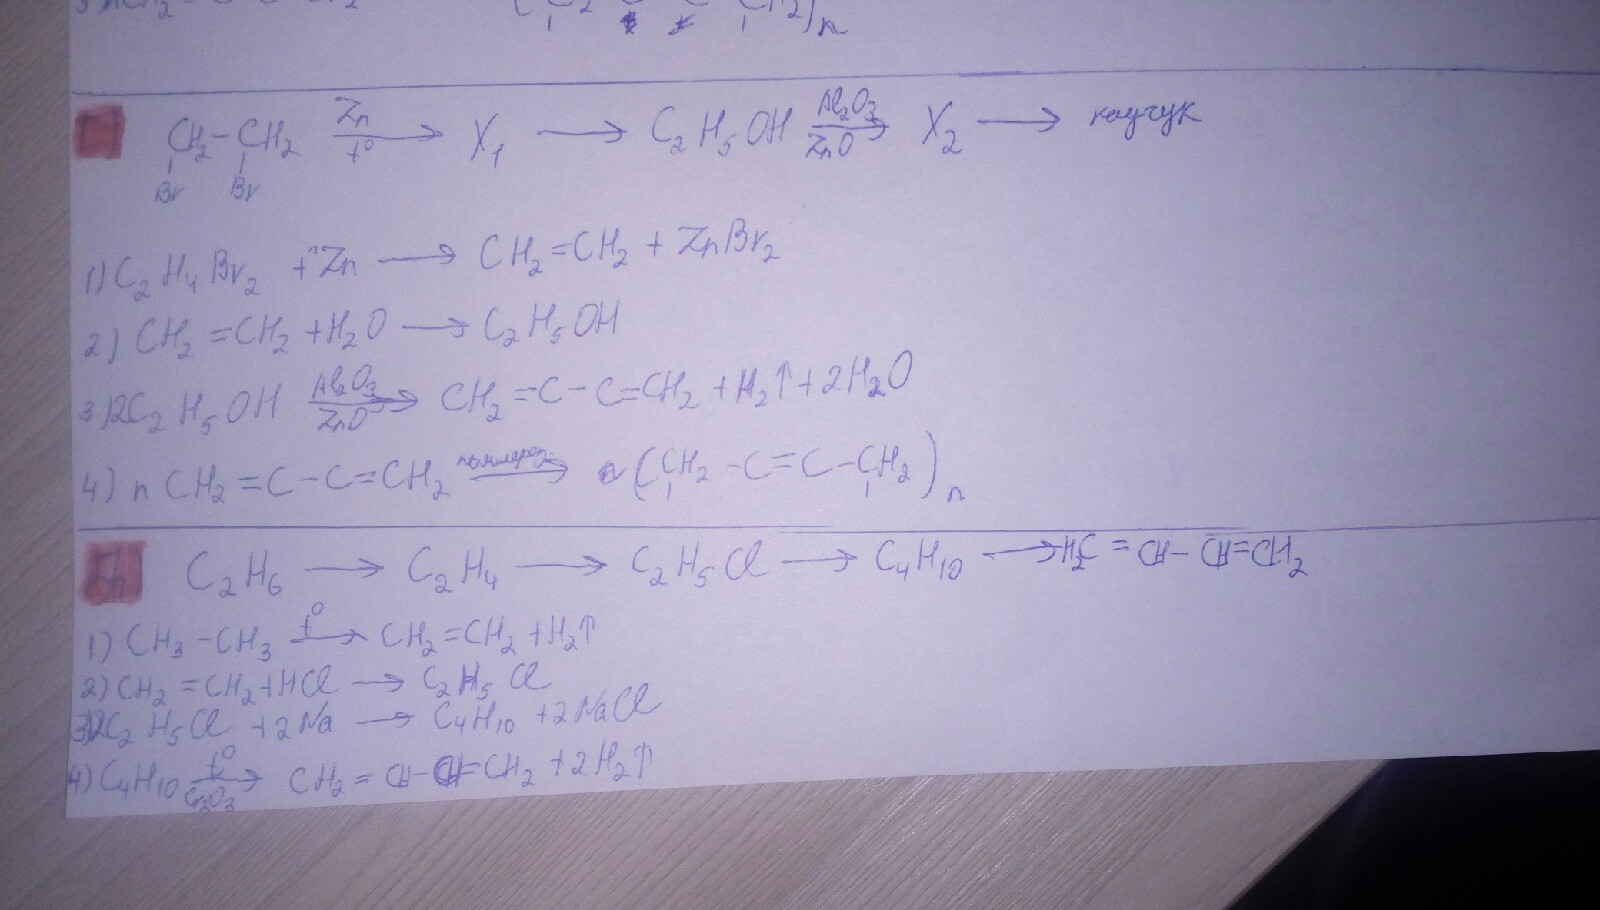 CH₂-CH₂ Zn t° → X₁ → C₂H₅OH Al₂O₃ ZnO → X₂ → каучук
Br Br
1) C₂H₄Br₂ + Zn → CH₂=CH₂ + ZnBr₂
2) CH₂=CH₂ + H₂O → C₂H₅OH
3) 2C₂H₅OH Al₂O₃ ZnO → CH₂=C-C=CH₂ + H₂↑ + 2H₂O
4) n CH₂=C-C=CH₂ → (CH₂-C=C-CH₂)n
C₂H₆ → C₂H₄ → C₂H₅Cl → C₄H₁₀ → H₂C=CH-CH=CH₂
1) CH₃-CH₃ t° → CH₂=CH₂ + H₂↑
2) CH₂=CH₂ + HCl → C₂H₅Cl
3) 2C₂H₅Cl + 2Na → C₄H₁₀ + 2NaCl
4) C₄H₁₀ t° Cr₂O₃ → CH₂=CH-CH=CH₂ + 2H₂↑